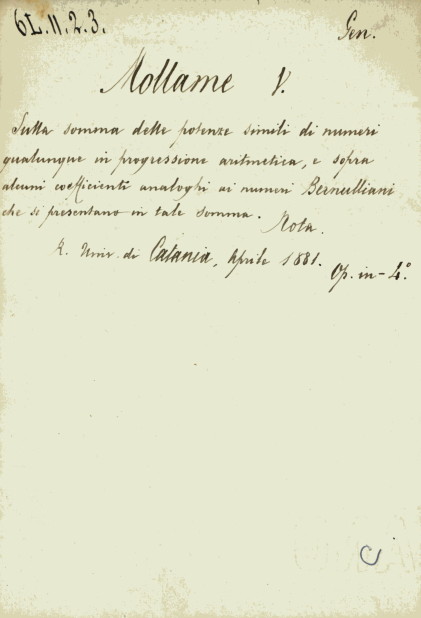 6L.11.2.3.
Gen.
Mollame V.
Sulla somma delle potenze simili di numeri
qualunque in progressione aritmetica, e sopra
alcuni coefficienti analoghi ai numeri Bernulliani
che si presentano in tale somma. Nota.
R. Univ. di Catania, Aprile 1881.
Op. in-4.°
C